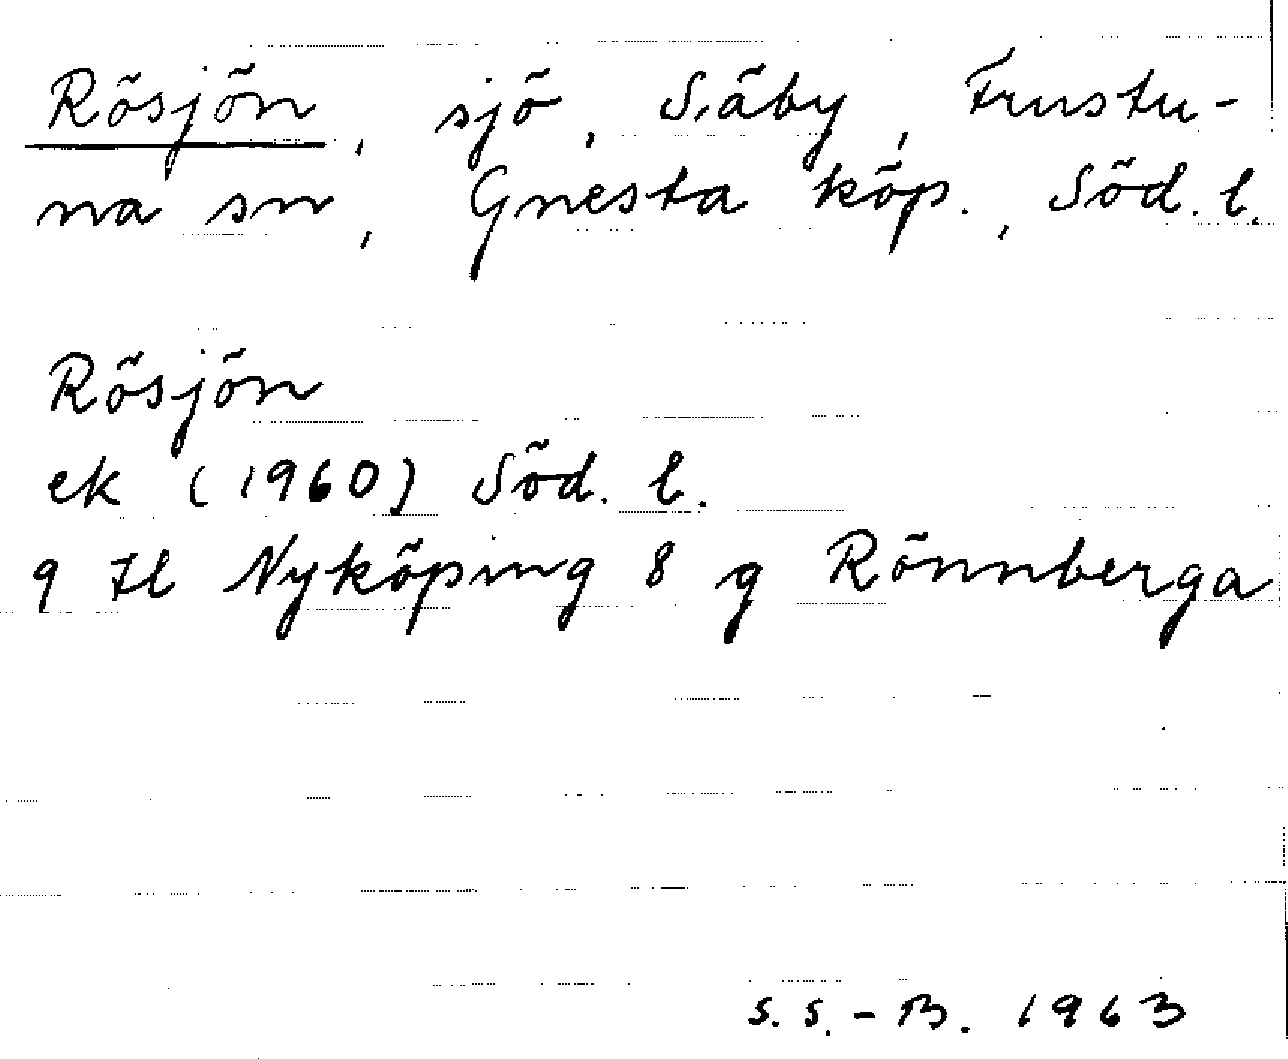 Rösjön, sjö, Säby, Frustu-
na sn, Gnesta köp., Söd. l.
Rösjön
ek (1960) Söd. l.
9 H Nyköping 8 g Rönnberga
S. S. - B. 1963